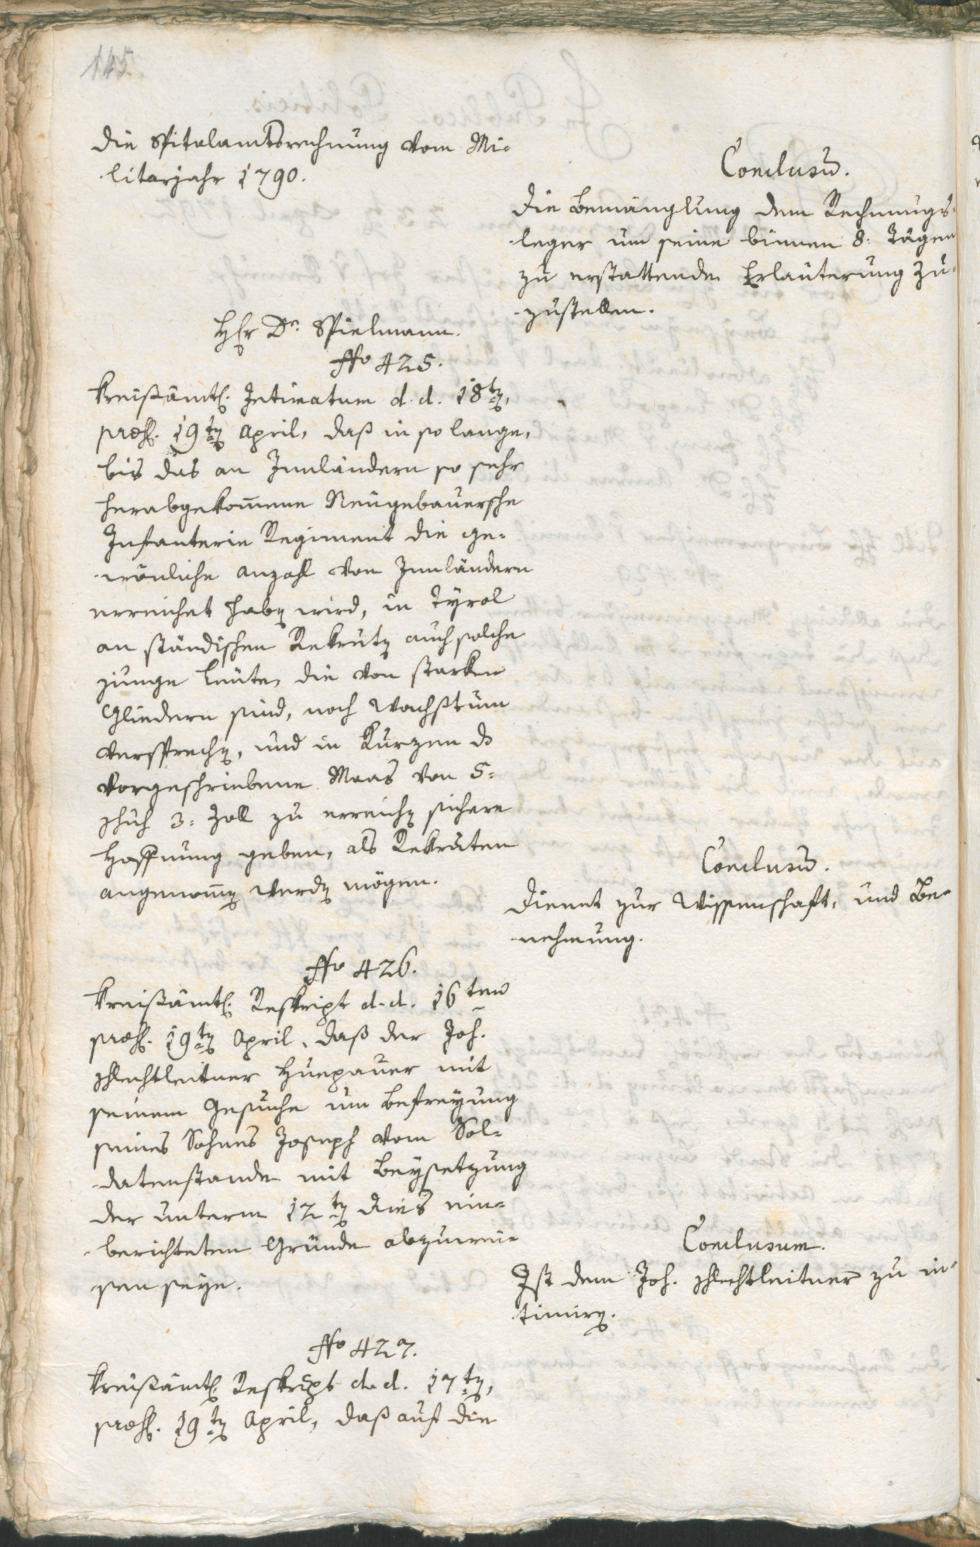 145.
die Spitalamtsrechnung vom Mi-
litarjahr 1790.
Conclusum.
die Bemänglung dem Rechnungs-
leger um seine binnen 8. Tägen
zu erstattende Erläuterung zu-
zustellen.
HEr Dr. Spielmann.
No 425.
Kreißämtl. Intimatum d. d. 18ten,
præs. 19ten April, daß in so lange,
bis das an Innländern so sehr
herabgekom̄ene Neugebauersche
Infanterie Regiment die ge-
wönliche Anzahl von Innländern
erreichet haben wird, in Tyrol
an ständischen Rekruten auch solche
junge Leüte, die von starken
Gliedern sind, noch Wachstum
versprechen, und in Kurzem das
vorgeschriebene Maas von 5.
Schuh 3. Zoll zu erreichen sichere
Hoffnung geben, als Rekruten
angenom̄en werden mögen.
Conclusum.
Dienet zur Wissenschaft, und Be-
nehmung.
No 426.
Kreißämtl. Reskript d. d. 16ten
præs. 19ten April, daß der Joh.
Schlechtleitner Huepauer mit
seinem Gesuche um Befreyung
seines Sohnes Joseph vom Sol-
datenstande mit Beysetzung
der unterm 12ten dies ein-
berichteten Gründe abzuwei-
sen seye.
Conclusum.
Ist dem Joh. Schlechtleitner zu in-
timiren.
No 427.
Kreißämtl. Reskript d. d. 17ten,
præs. 19ten April, daß auf die